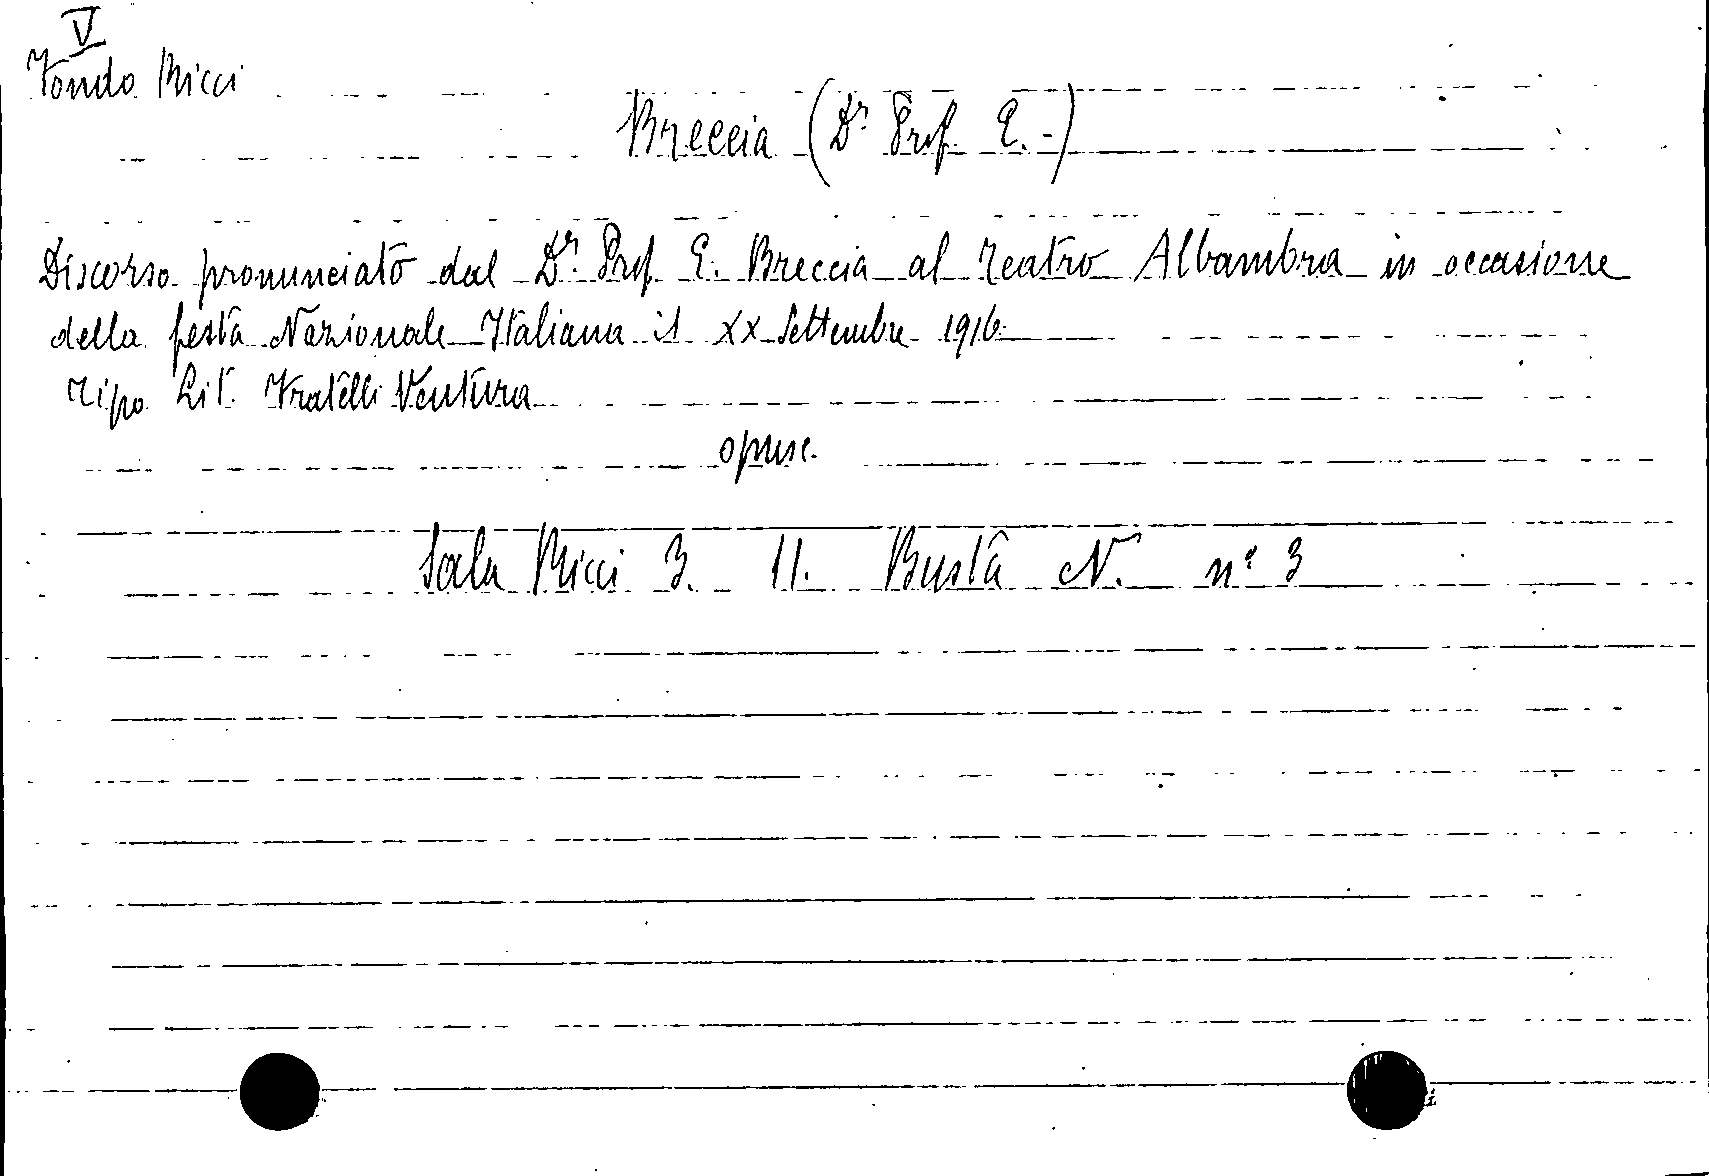 V
Fondo Ricci
Breccia (Dr. Prof. E.-)
Discorso pronunciato dal Dr. Prof. E. Breccia al Teatro Alhambra in occasione
della festa Nazionale Italiana il XX Settembre 1916.
Tipo Lit. Fratelli Ventura
opusc.
Sala Ricci 3. 11. Busta N. nº 3